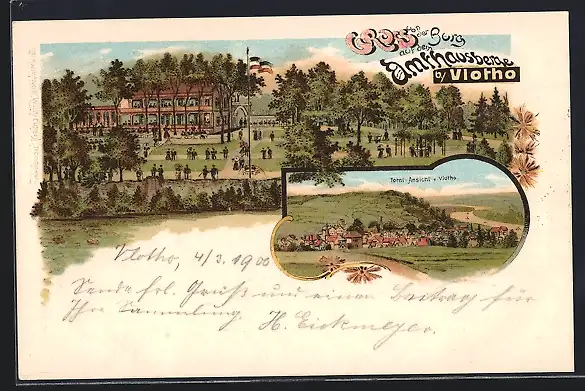 Gruss von der Burg
auf dem
Amthausberge
b/ Vlotho
Total-Ansicht v. Vlotho.
Vlotho, 4/3. 1900
Sende frl. Gruß und einen Beitrag für
Ihre Sammlung. H. Eickmeyer.